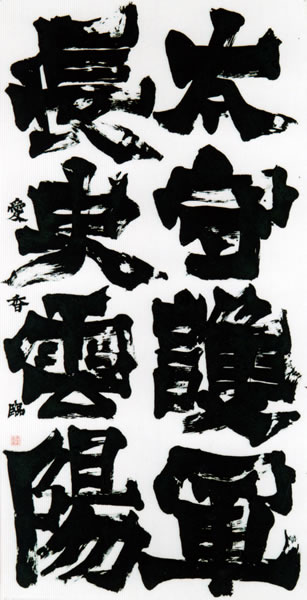 太守護軍
長史雲陽
愛香臨